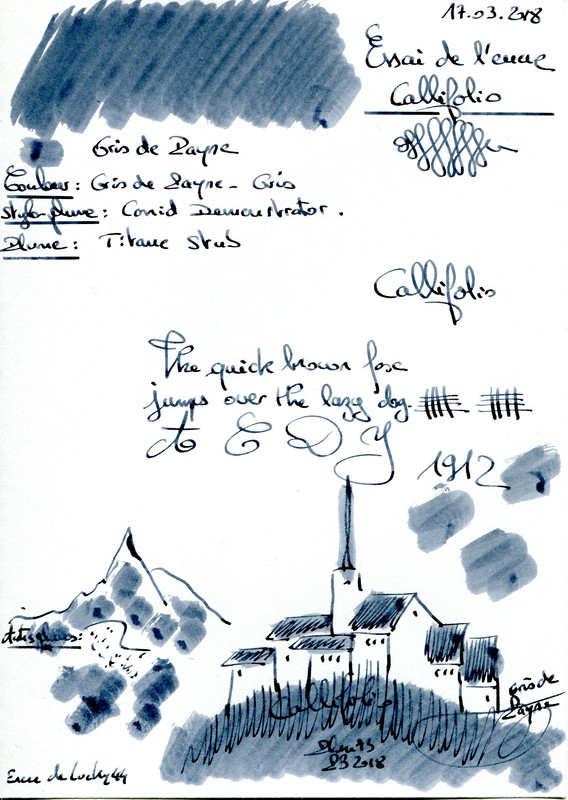 17.03.2018
Essai de l'encre
Callifolio
Gris de Payne
Couleur : Gris de Payne - Gris
Stylo-plume : Conid Demonstrator.
Plume : Titane Stub
Callifolio
The quick brown fox
jumps over the lazy dog.
A E D Y
1912
Callifolio
Gris de
Payne
23 2018
Encre de Lucky44